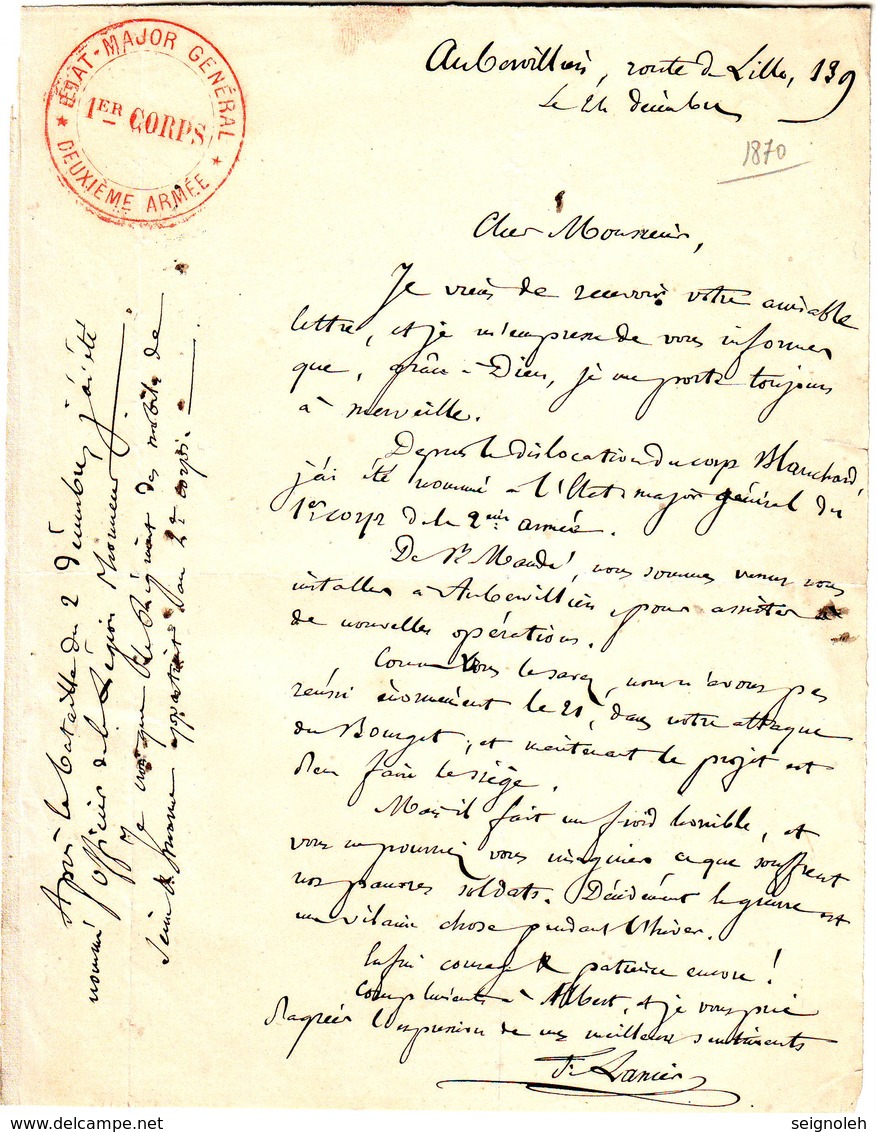 ÉTAT-MAJOR GÉNÉRAL
1ER CORPS
DEUXIÈME ARMÉE
Aubervilliers, route de Lille, 139
le 24 décembre
1870
Cher Monsieur,
Je viens de recevoir votre aimable
lettre, et je m'empresse de vous informer
que, grâce à Dieu, je me porte toujours
à merveille.
Depuis la dislocation du corps Blanchard,
j'ai été nommé à l'Etat major général du
1er corps de la 2eme armée.
De St Mandé, nous sommes venus nous
installer à Aubervilliers, pour assister à
de nouvelles opérations.
Comme vous le savez, nous n'avons pas
réussi énormément le 21, dans notre attaque
du Bourget, et maintenant le projet est
d'en faire le siège.
Mais il fait un froid horrible, et
vous ne pourriez vous imaginer ce que souffrent
nos pauvres soldats. Décidément la guerre est
une vilaine chose pendant l'hiver.
Enfin courage & patience encore !
Compliments à Albert, et je vous prie
d'agréer l'expression de mes meilleurs sentiments
F. Lanier
Après la bataille du 2 décembre, j'ai été
nommé officier de la Légion d'honneur.
Je crois que le régiment des mobiles de
Seine & Marne appartient au 2e corps.
seignoleh